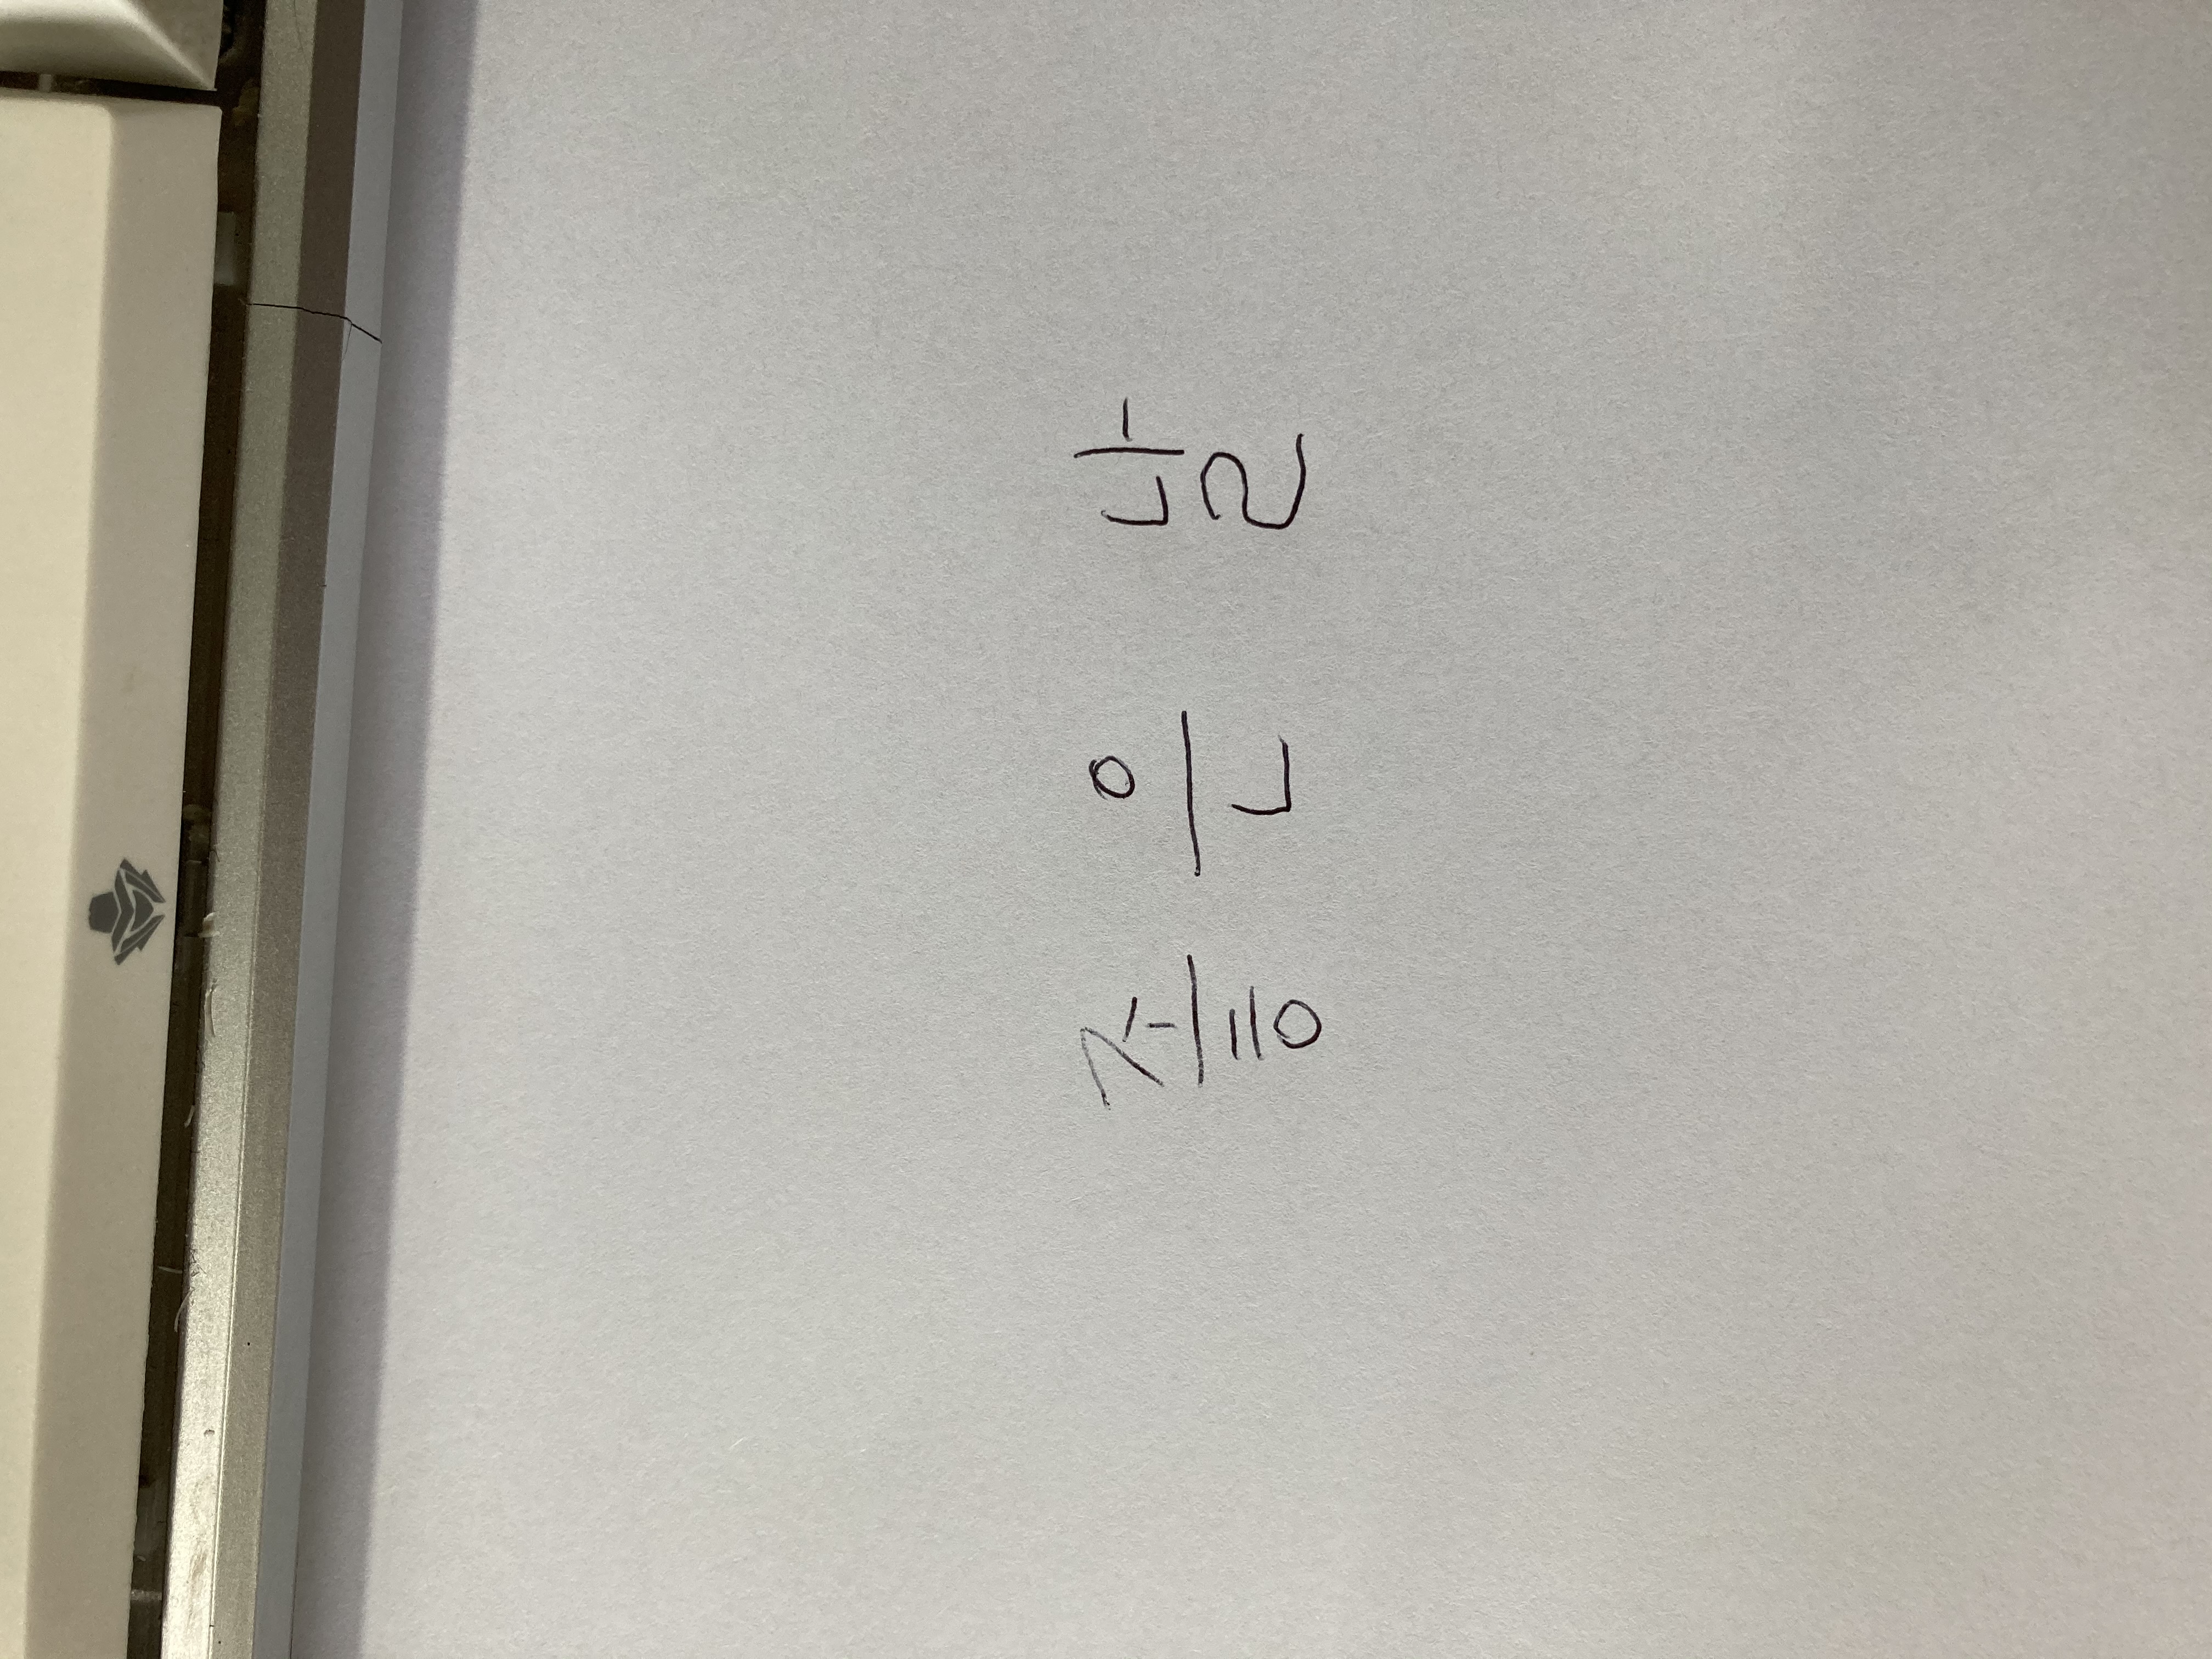 좋은 날